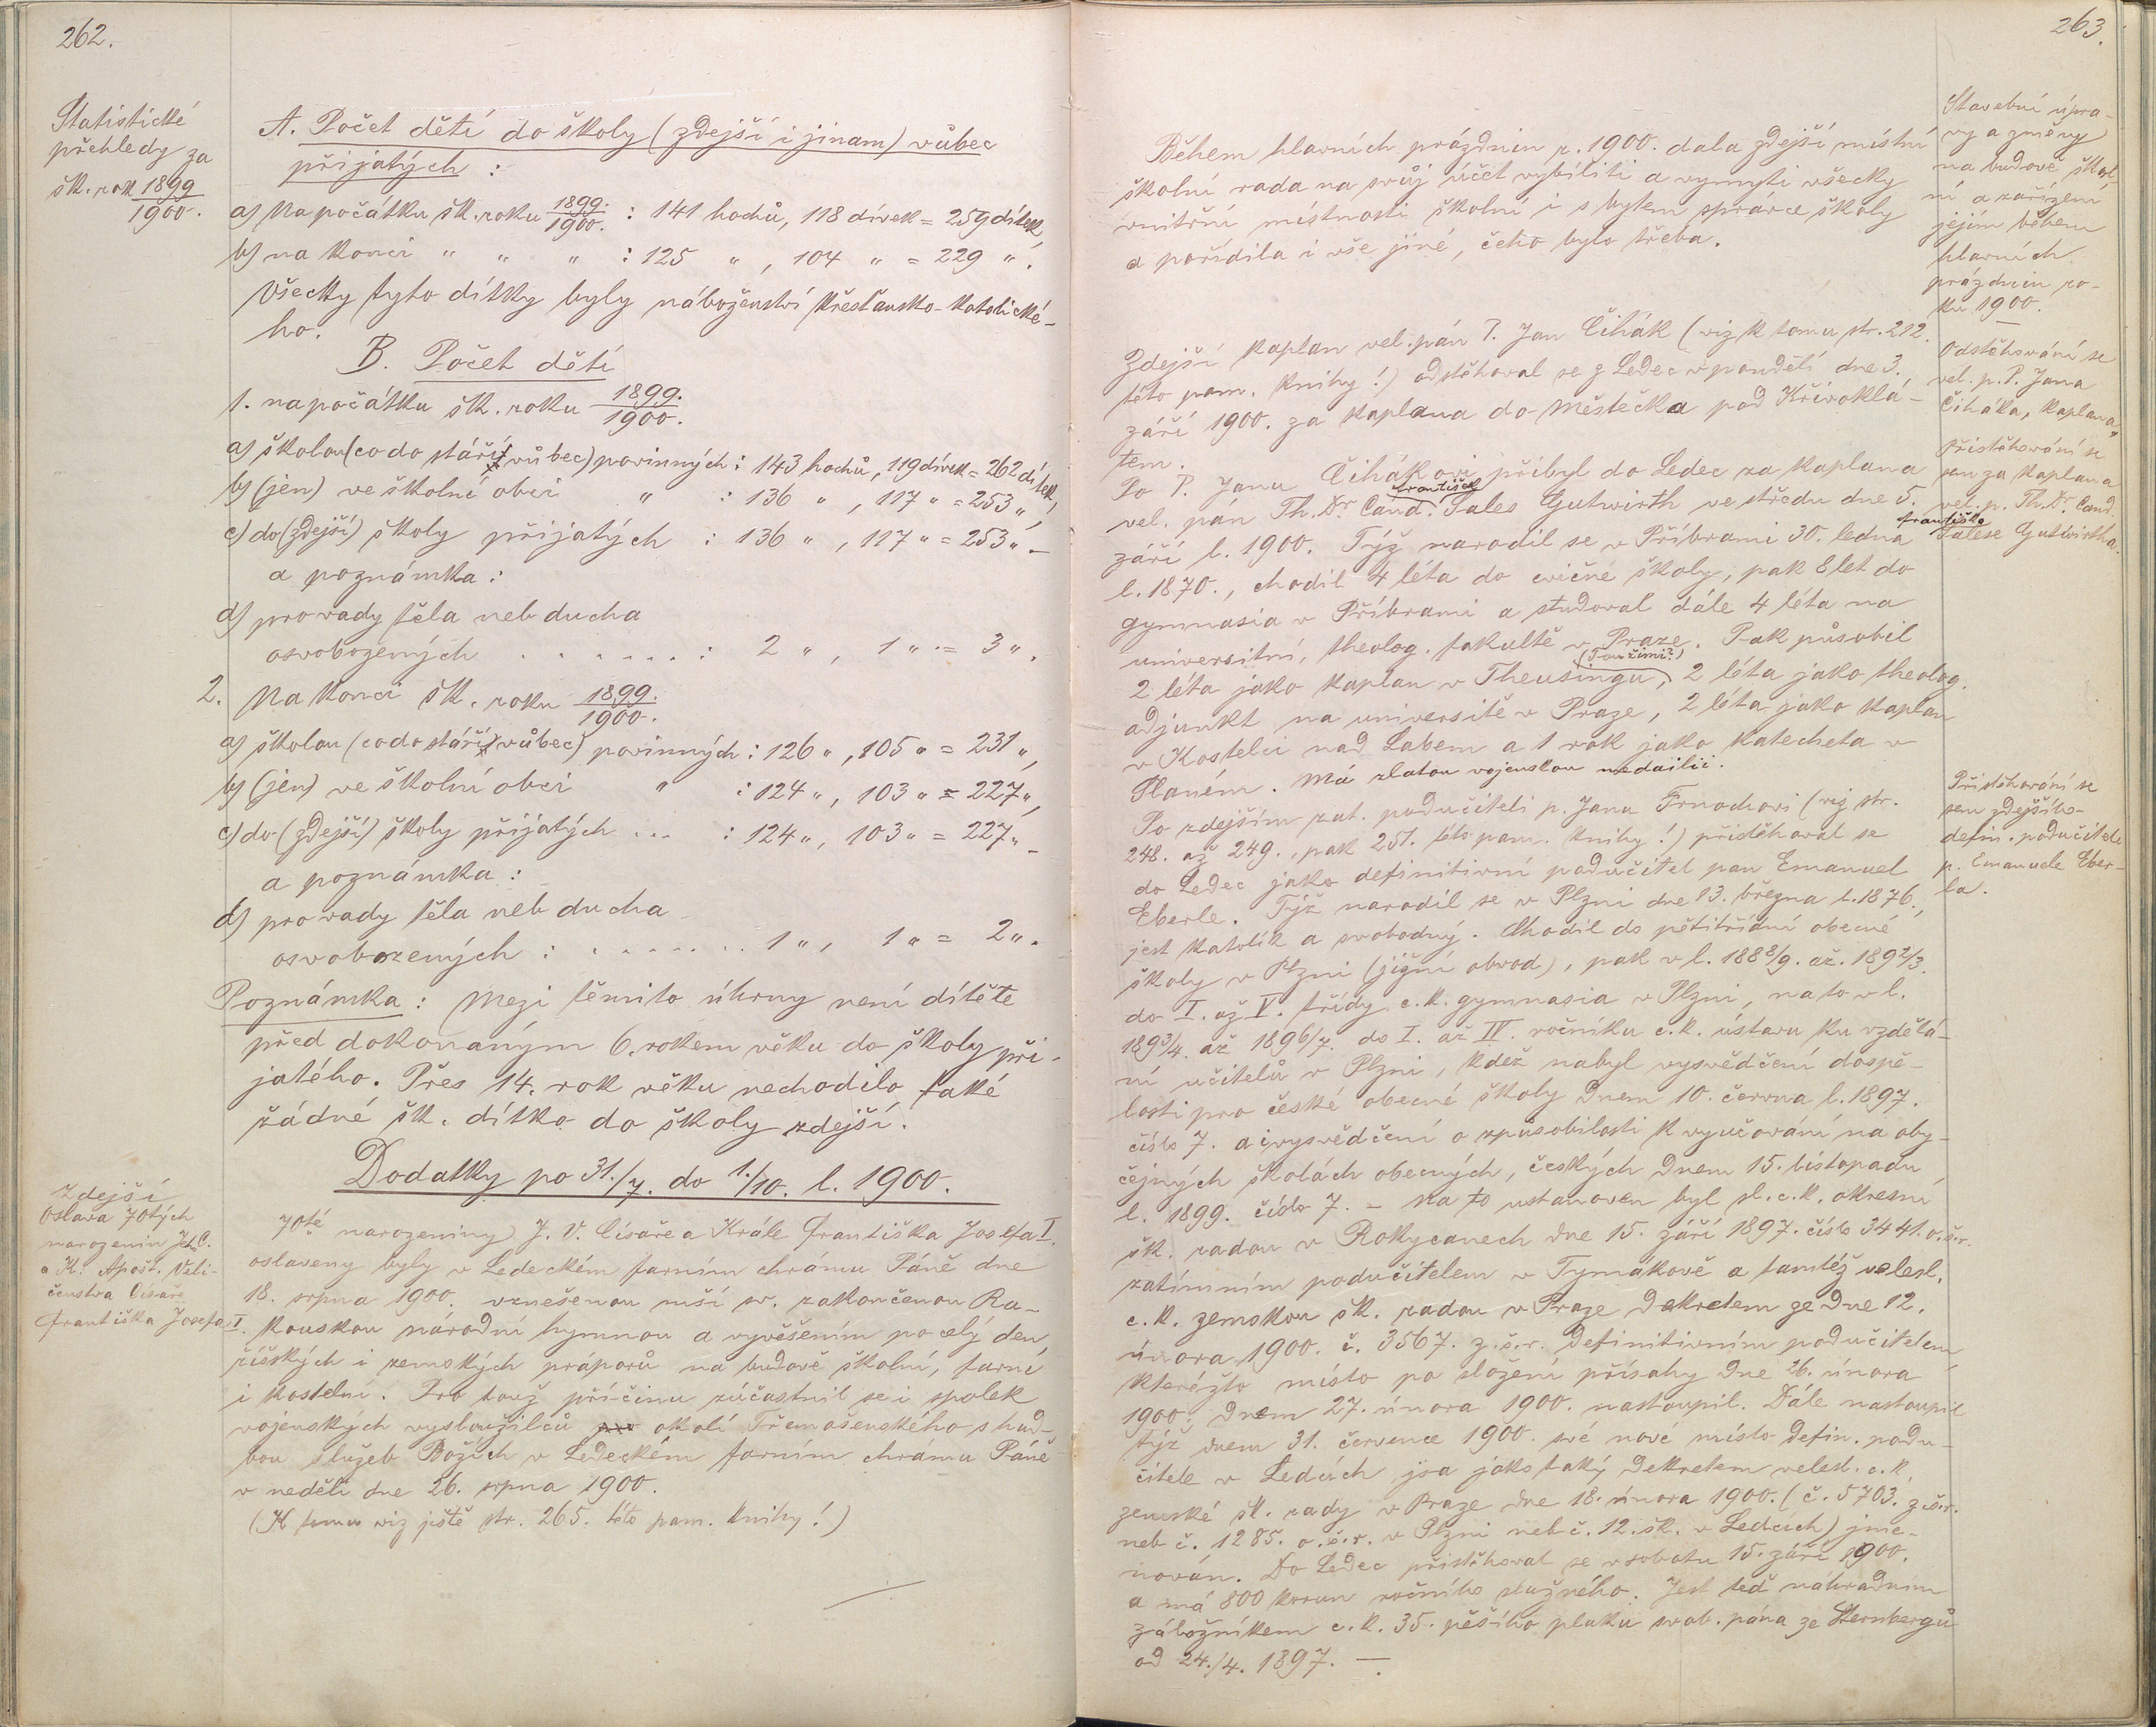 262.
Statistické
přehledy za
šk. rok 1899
1900.
A. Počet dětí do školy (zdejší i jinam) vůbec
přijatých :
a) Na počátku šk. roku 1899./1900. : 141 hochů, 118 dívek = 259 dítek,
b) na konci " " " : 125 " , 104 " = 229 " .
Všecky tyto dítky byly náboženství křesťansko-katolické-
ho.
B. Počet dětí
1. na počátku šk. roku 1899./1900.
a) školou (co do stáří vůbec) povinných : 143 hochů, 119 dívek = 262 dítek,
b) (jen) ve školní obci " : 136 " , 117 " = 253 ",
c) do (zdejší) školy přijatých : 136 " , 117 " = 253 " –
a poznámka :
d) pro vady těla neb ducha
osvobozených . . . . . . . : 2 " , 1 " = 3 " .
2. Na konci šk. roku 1899./1900.
a) školou (co do stáří vůbec) povinných : 126 " , 105 " = 231 ",
b) (jen) ve školní obci " : 124 " , 103 " = 227 ",
c) do (zdejší) školy přijatých ... : 124 " , 103 " = 227 " –
a poznámka :
d) pro vady těla neb ducha
osvobozených : . . . . . . . 1 " , 1 " = 2 " .
Poznámka : Mezi těmito úhrny není dítěte
před dokonaným 6. rokem věku do školy při-
jatého. Přes 14. rok věku nechodilo také
žádné šk. dítko do školy zdejší.
Dodatky po 31./7. do 1./10. l. 1900.
Zdejší
oslava 70tých
narozenin Jeh. C.
a K. Apošt. Veli-
čenstva Císaře
Františka Josefa I.
70té narozeniny J. V. Císaře a Krále Františka Josefa I.
oslaveny byly v Ledeckém farním chrámu Páně dne
18. srpna 1900. vznešenou mší sv. zakončenou Ra-
kouskou národní hymnou a vyvěšením po celý den
říšských i zemských práporů na budově školní, farní
i kostelní. Pro touž příčinu zúčastnil se i spolek
vojenských vysloužilců okolí Třemošenského s hud-
bou služeb Božích v Ledeckém farním chrámu Páně
v neděli dne 26. srpna 1900.
(K tomu viz ještě str. 265. této pam. knihy!)
263.
Stavební úpra-
vy a změny
na budově škol-
ní a zařízení
jejím během
hlavních
prázdnin ro-
ku 1900.
Během hlavních prázdnin r. 1900. dala zdejší místní
školní rada na svůj účet vybíliti a vymyti všecky
vnitřní místnosti školní i s bytem správce školy
a pořídila i vše jiné, čeho bylo třeba.
Odstěhování se
vel. p. P. Jana
Čiháka, kaplana.
Zdejší kaplan vel. pán P. Jan Čihák (viz k tomu str. 212.
této pam. knihy!) odstěhoval se z Ledec v pondělí dne 3.
září 1900. za kaplana do Městečka pod Křivoklá-
tem.
Přistěhování se
sem za kaplana
vel. p. Th. Dr. Cand.
Františka
Salese Gutwirtha.
Po P. Janu Čihákovi přibyl do Ledec za kaplana
František
vel. pán Th. Dr. Cand. Sales Gutwirth ve středu dne 5.
září l. 1900. Týž narodil se v Příbrami 30. ledna
l. 1870., chodil 4 léta do cvičné školy, pak 8 let do
gymnasia v Příbrami a studoval dále 4 léta na
universitní, theolog. fakultě v Praze. Pak působil
(Toužimi?)
2 léta jako kaplan v Theusingu, 2 léta jako theolog.
adjunkt na universitě v Praze, 2 léta jako kaplan
v Kostelci nad Labem a 1 rok jako katecheta v
Planém. Má zlatou vojenskou medailii.
Přistěhování se
sem zdejšího
defin. podučitele
p. Emanuele Eber-
la.
Po zdejším zat. podučiteli p. Janu Trnochovi (viz str.
248. až 249., pak 251. této pam. knihy!) přistěhoval se
do Ledec jako definitivní podučitel pan Emanuel
Eberle. Týž narodil se v Plzni dne 13. března l. 1876.,
jest katolík a svobodný. Chodil do pětitřídní obecné
školy v Plzni (jižní obvod), pak v l. 1888/9. až 1892/3.
do I. až V. třídy c. k. gymnasia v Plzni, na to v l.
1893/4. až 1896/7. do I. až IV. ročníku c. k. ústavu ku vzdělá-
ní učitelů v Plzni, kdež nabyl vysvědčení dospě-
losti pro české obecné školy dnem 10. června l. 1897.
číslo 7. a i vysvědčení o způsobilosti k vyučování na oby-
čejných školách obecných, českých dnem 15. listopadu
l. 1899. číslo 7. – Na to ustanoven byl sl. c. k. okresní
šk. radou v Rokycanech dne 15. září 1897. číslo 3441. o. š. r.
zatímním podučitelem v Tymákově a tamtéž veleslz.
c. k. zemskou šk. radou v Praze dekretem ze dne 12.
února 1900. č. 3567. z. š. r. definitivním podučitelem,
kteréžto místo po složení přísahy dne 26. února
1900. dnem 27. února 1900. nastoupil. Dále nastoupil
týž dnem 31. července 1900. své nové místo defin. podu-
čitele v Ledcích, jsa jako taký dekretem velesl. c. k.
zemské šk. rady v Praze dne 18. února 1900. (č. 5703. z. š. r.
neb č. 1285. o. š. r. v Plzni neb č. 12. šk. v Ledcích) jme-
nován. Do Ledec přistěhoval se v sobotu 15. září 1900.
a má 800 korun ročního služného. Jest teď náhradním
záložníkem c. k. 35. pěšího pluku svob. pána ze Sternbergů
od 24./4. 1897. –